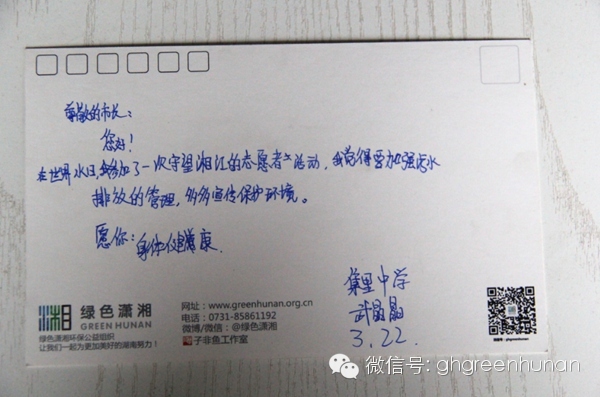 尊敬的市长：
您好！
在世界水日，我参加了一次守望湘江的志愿者活动，我觉得要加强污水
排放的管理，多多宣传保护环境。
愿你：身体健康
集里中学
武晶晶
3.22.
绿色潇湘
GREEN HUNAN
绿色潇湘环保公益组织
让我们一起为更加美好的湖南努力！
网址：www.greenhunan.org.cn
电话：0731-85861192
微博/微信：@绿色潇湘
子非鱼工作室
微信号：ghgreenhunan
微信号: ghgreenhunan